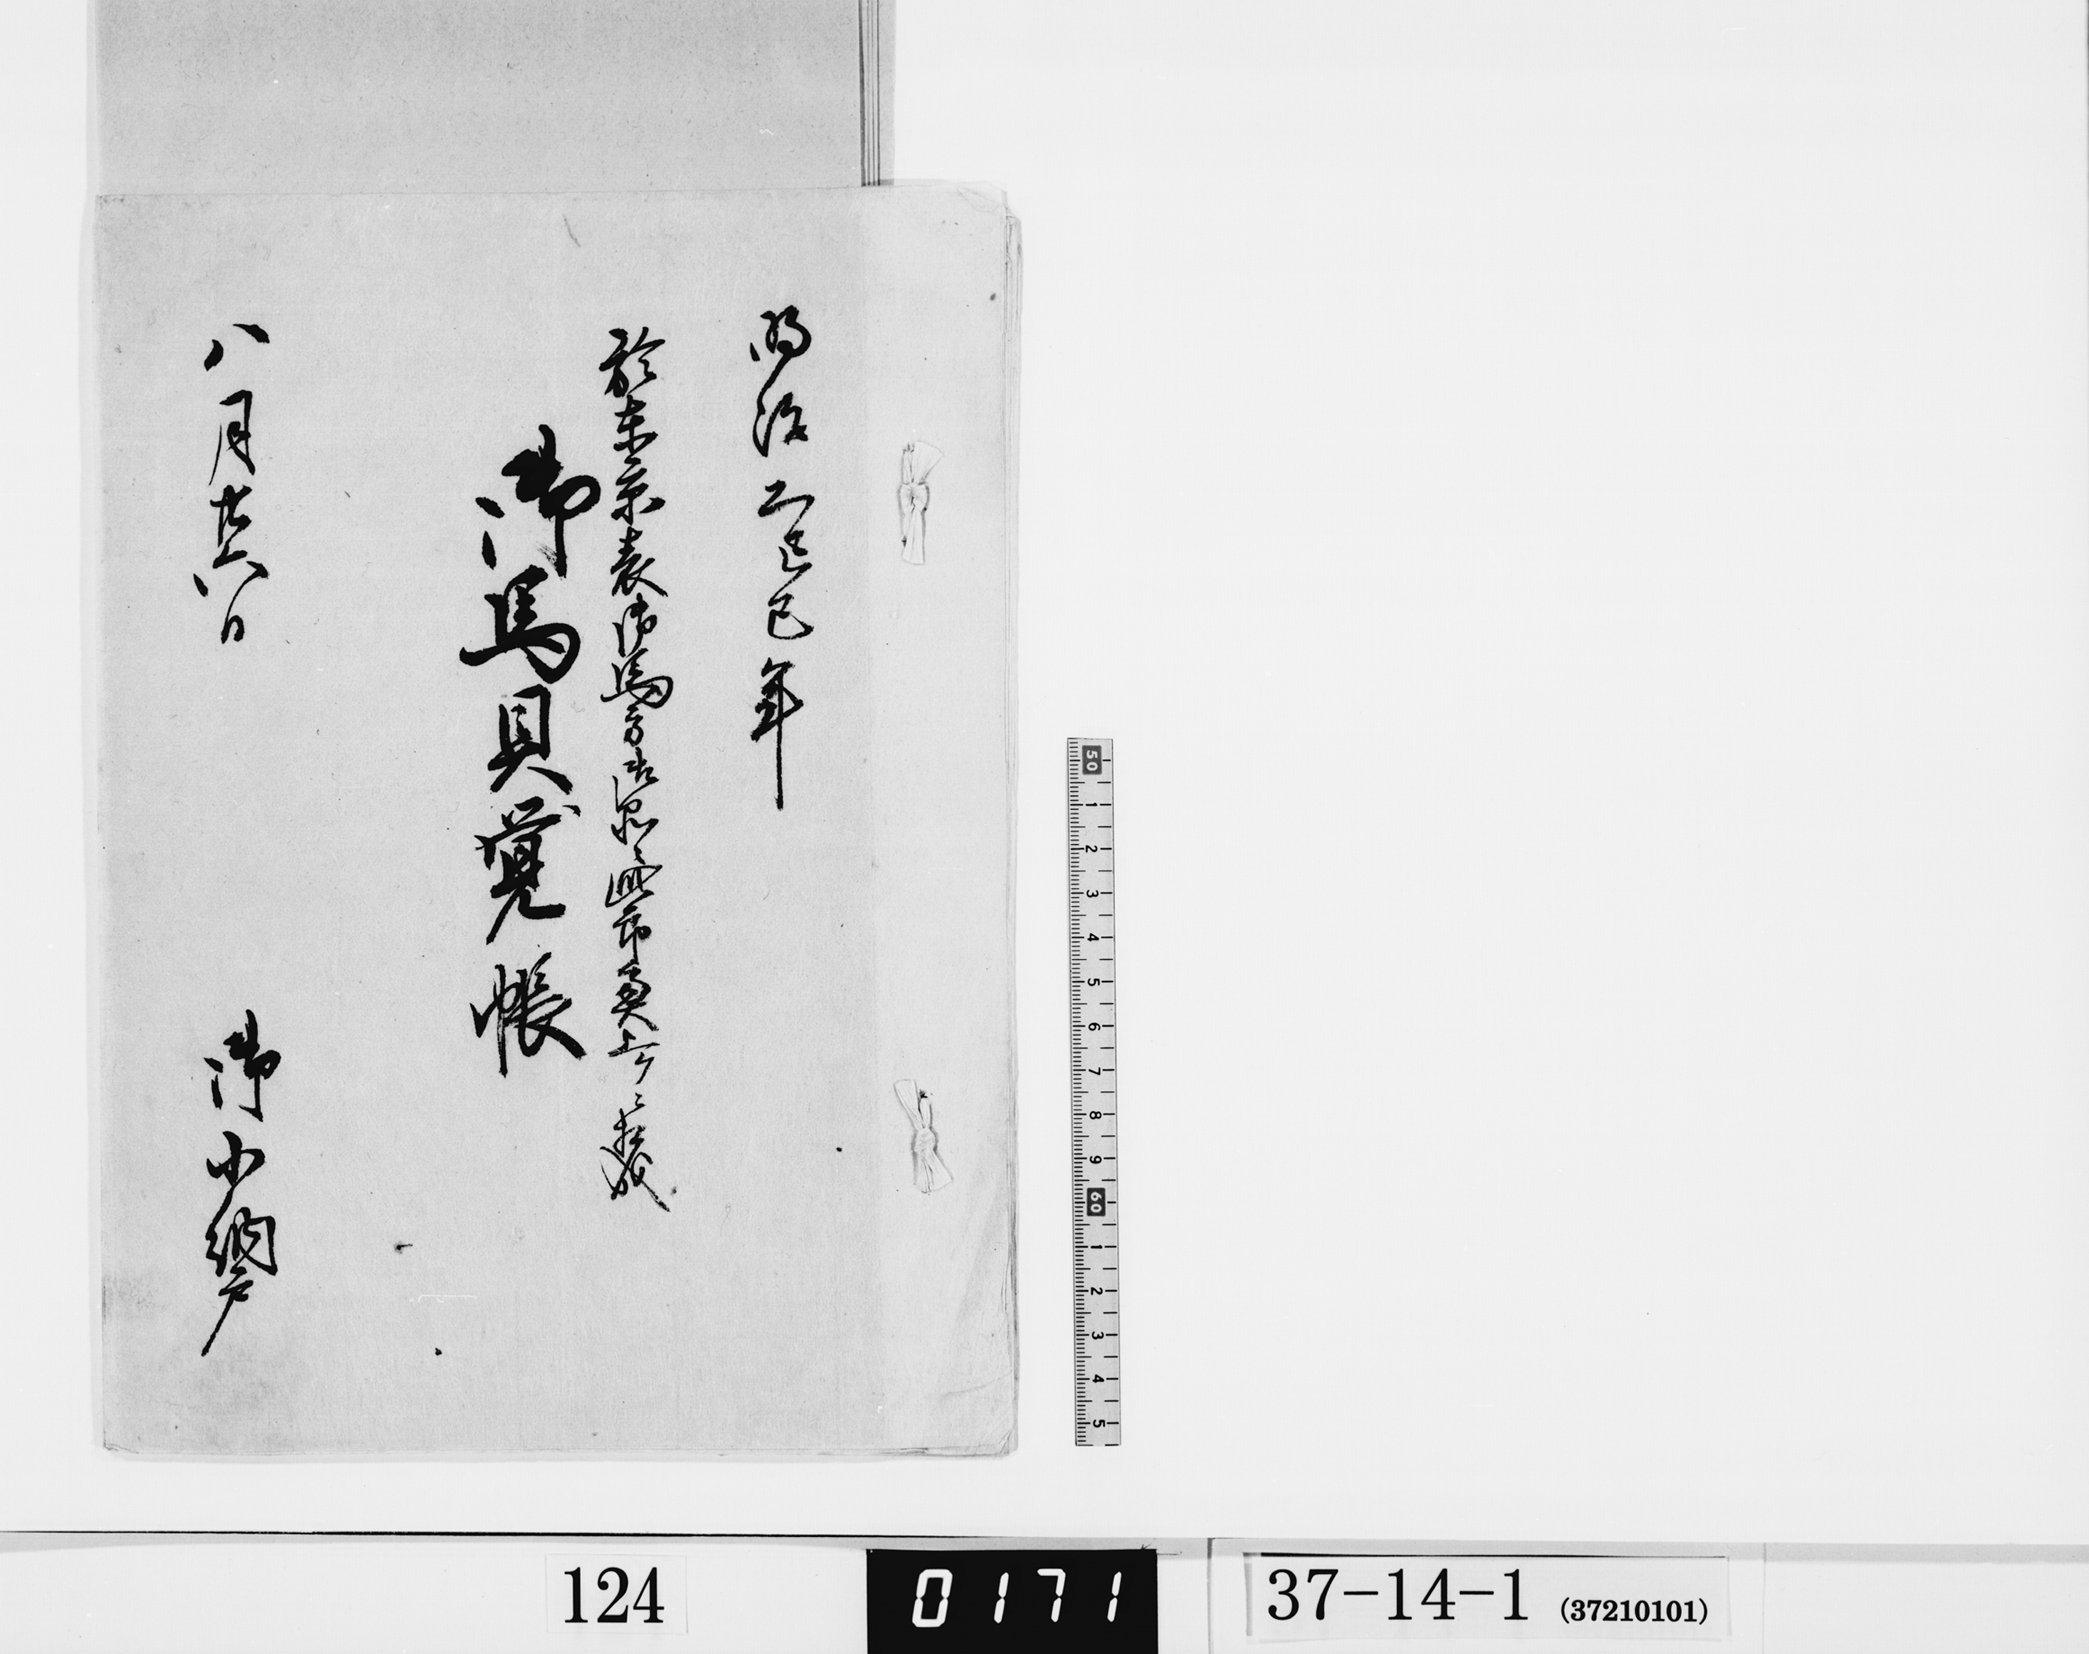 明治二己巳年
於東京表御馬方
御馬具覚帳
八月廿六日
御小納戸
50 1 2 3 4 5 6 7 8 9 60 1 2 3 4 5
124
0171
37-14-1 (37210101)